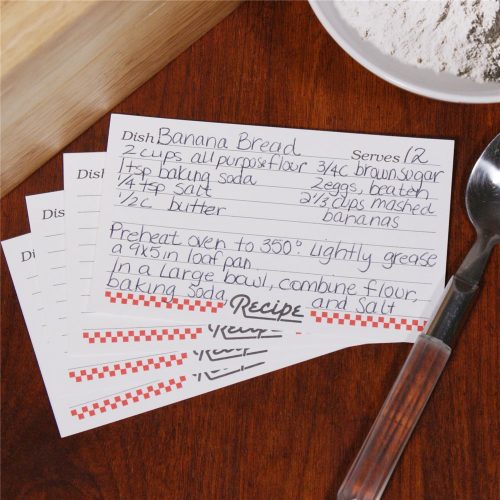 Dish Banana Bread Serves 12
2 cups all purpose flour 3/4C brown sugar
1 tsp baking soda 2 eggs, beaten
1/4 tsp salt 2 1/3 cups mashed
1/2c butter bananas
Preheat oven to 350°. Lightly grease
a 9x5 in loaf pan
In a Large bowl, combine flour,
baking soda and salt
Recipe
Dish
Recipe
Dish
Recipe
Dish
Recipe